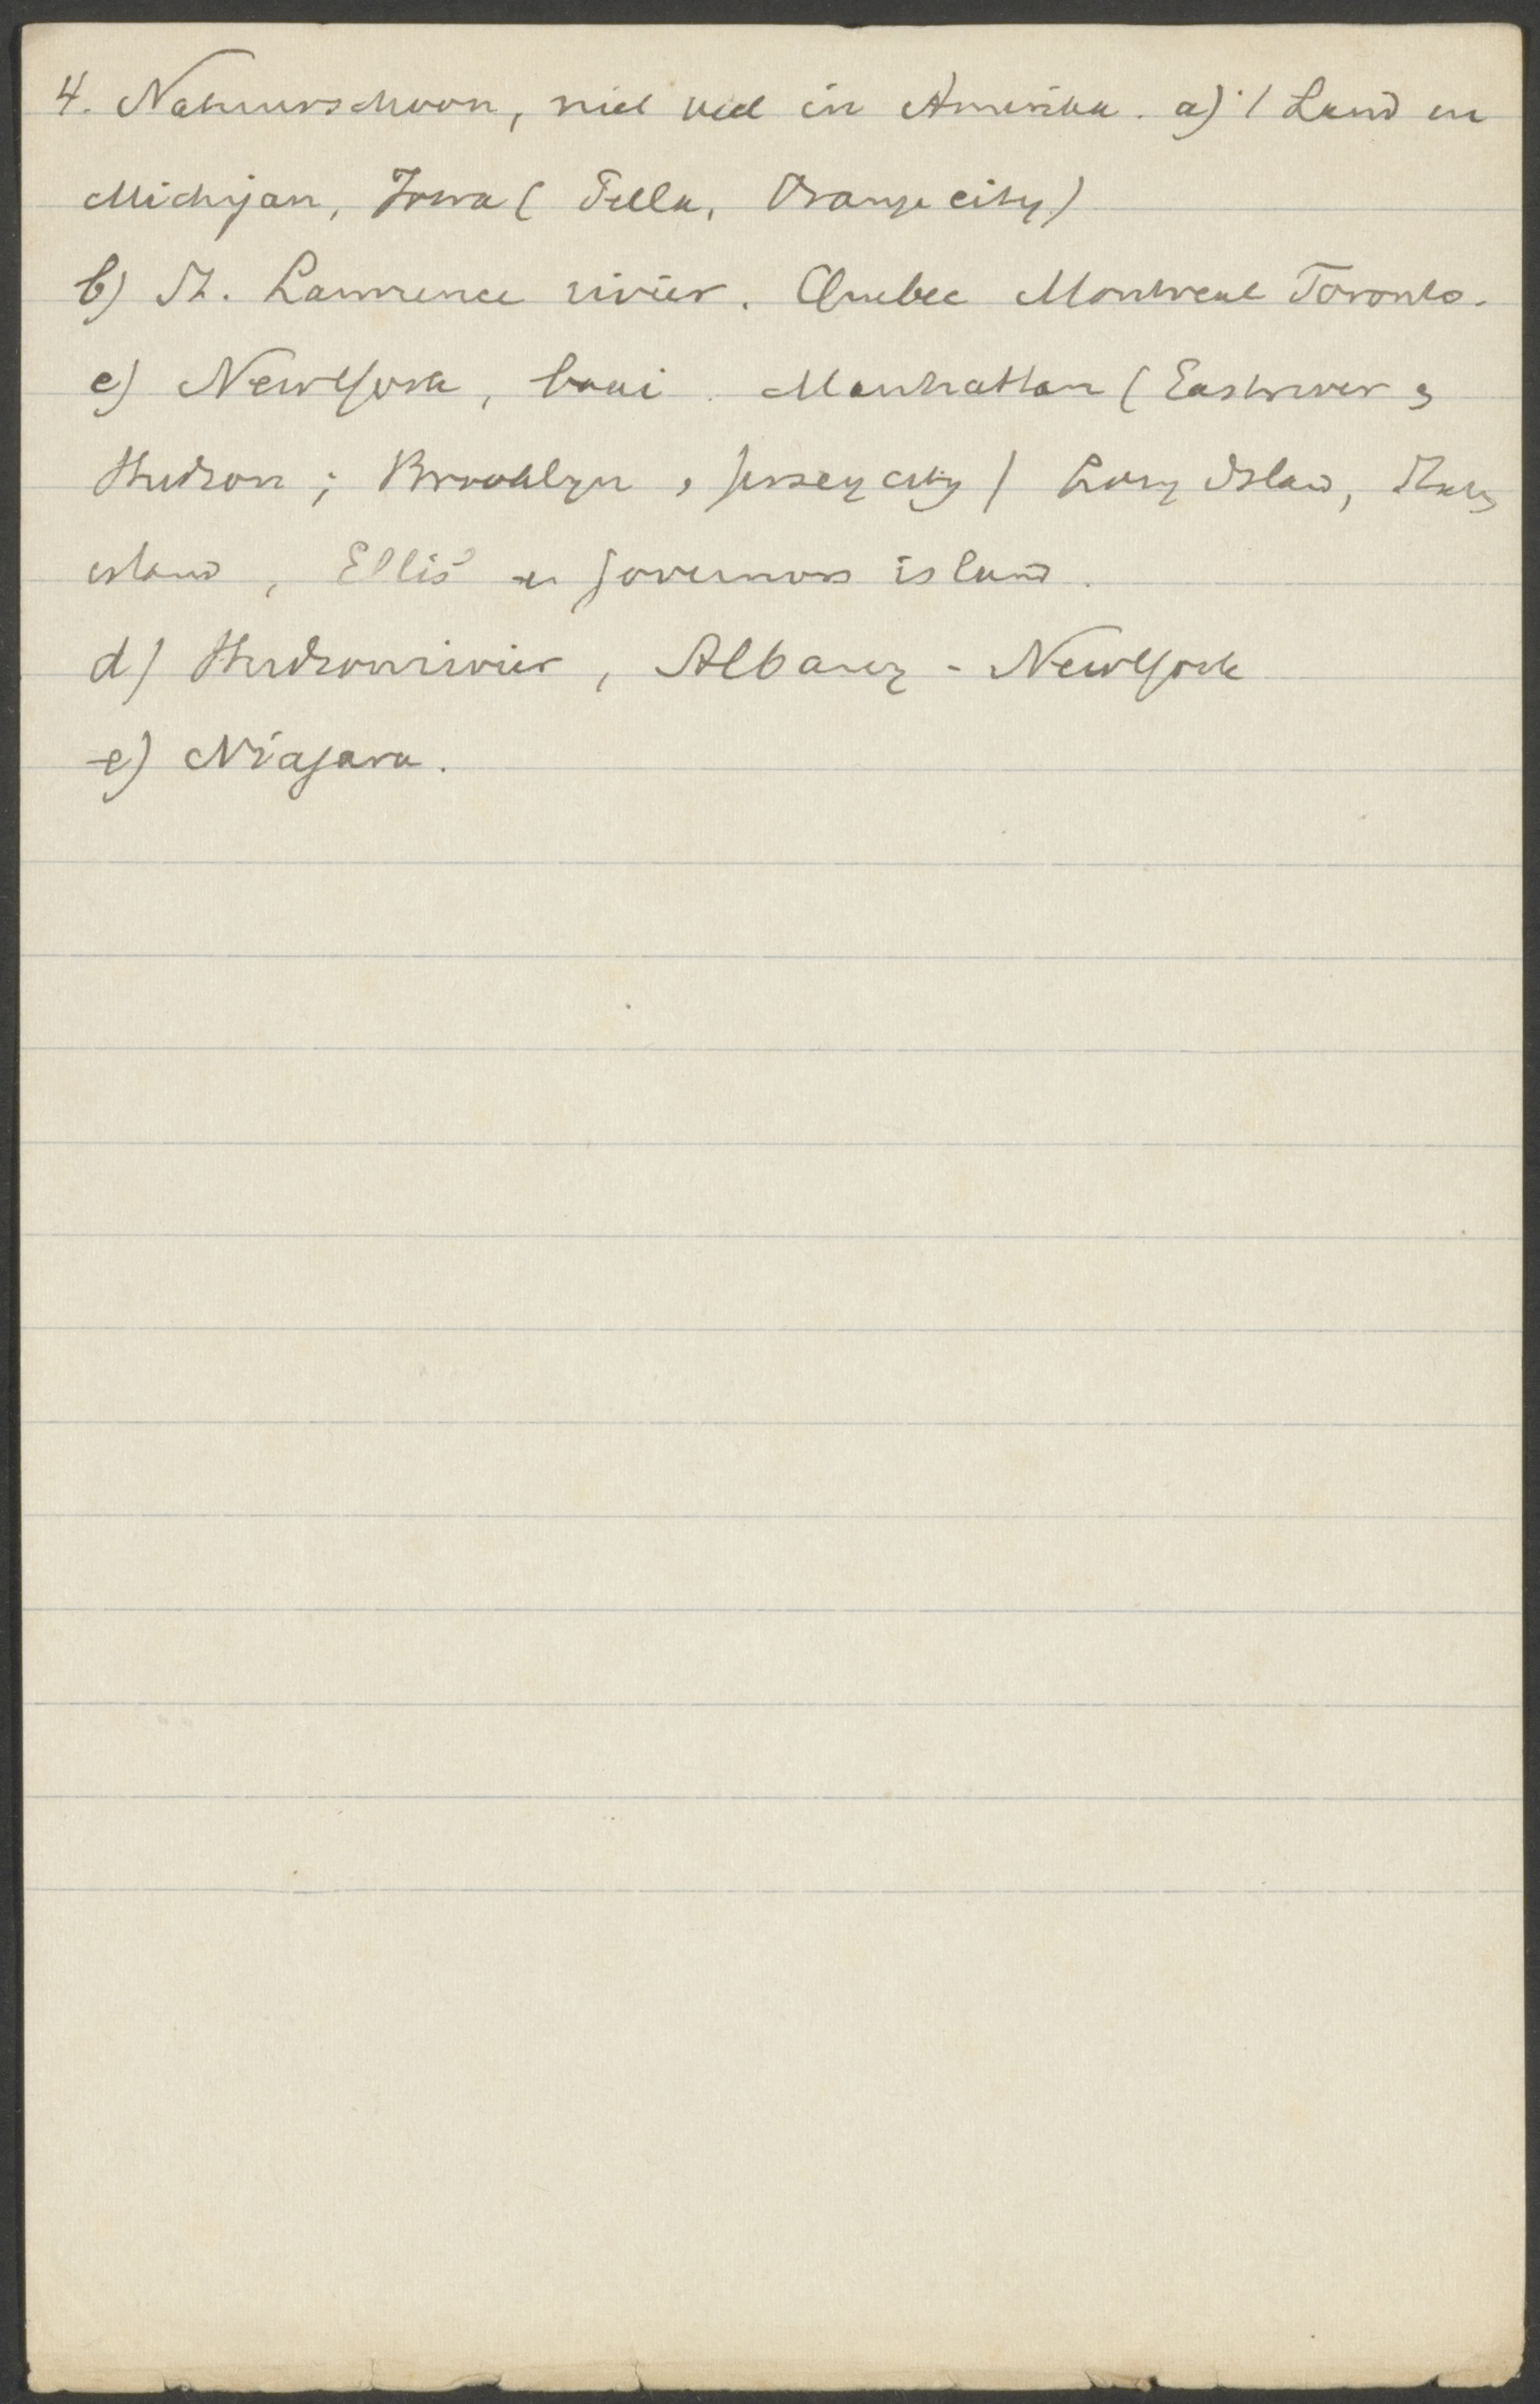 4. Natuurschoon, niet veel in Amerika. a) 't Land in
Michigan, Iowa (Pella, Orange city)
b) St. Lawrence rivier. Quebec Montreal Toronto.
c) NewYork, baai. Manhattan (Eastriver &
Hudson; Brooklyn, Jersey city) Long Island, Staten
island, Ellis en Governors island.
d) Hudsonrivier, Albany - NewYork
e) Niagara.